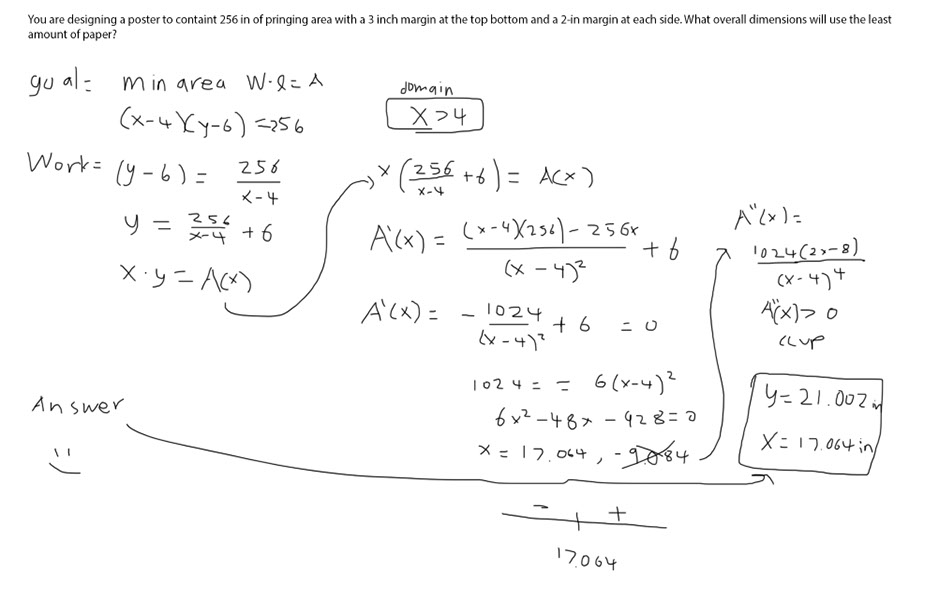 You are designing a poster to containt 256 in of pringing area with a 3 inch margin at the top bottom and a 2-in margin at each side. What overall dimensions will use the least
amount of paper?
goal= min area W·l = A
(x-4)(y-6) = 256
domain
x > 4
Work= (y-6) = 256/(x-4)
y = 256/(x-4) + 6
x·y = A(x)
x(256/(x-4) + 6) = A(x)
A'(x) = ((x-4)(256) - 256x)/(x-4)² + 6
A'(x) = -1024/(x-4)² + 6 = 0
1024 = = 6(x-4)²
6x² - 48x - 928 = 0
x = 17.064, -9.084
- +
17.064
A"(x) =
1024(2x-8)/(x-4)⁴
A"(x) > 0
CCUP
Answer
y = 21.002 in
x = 17.064 in